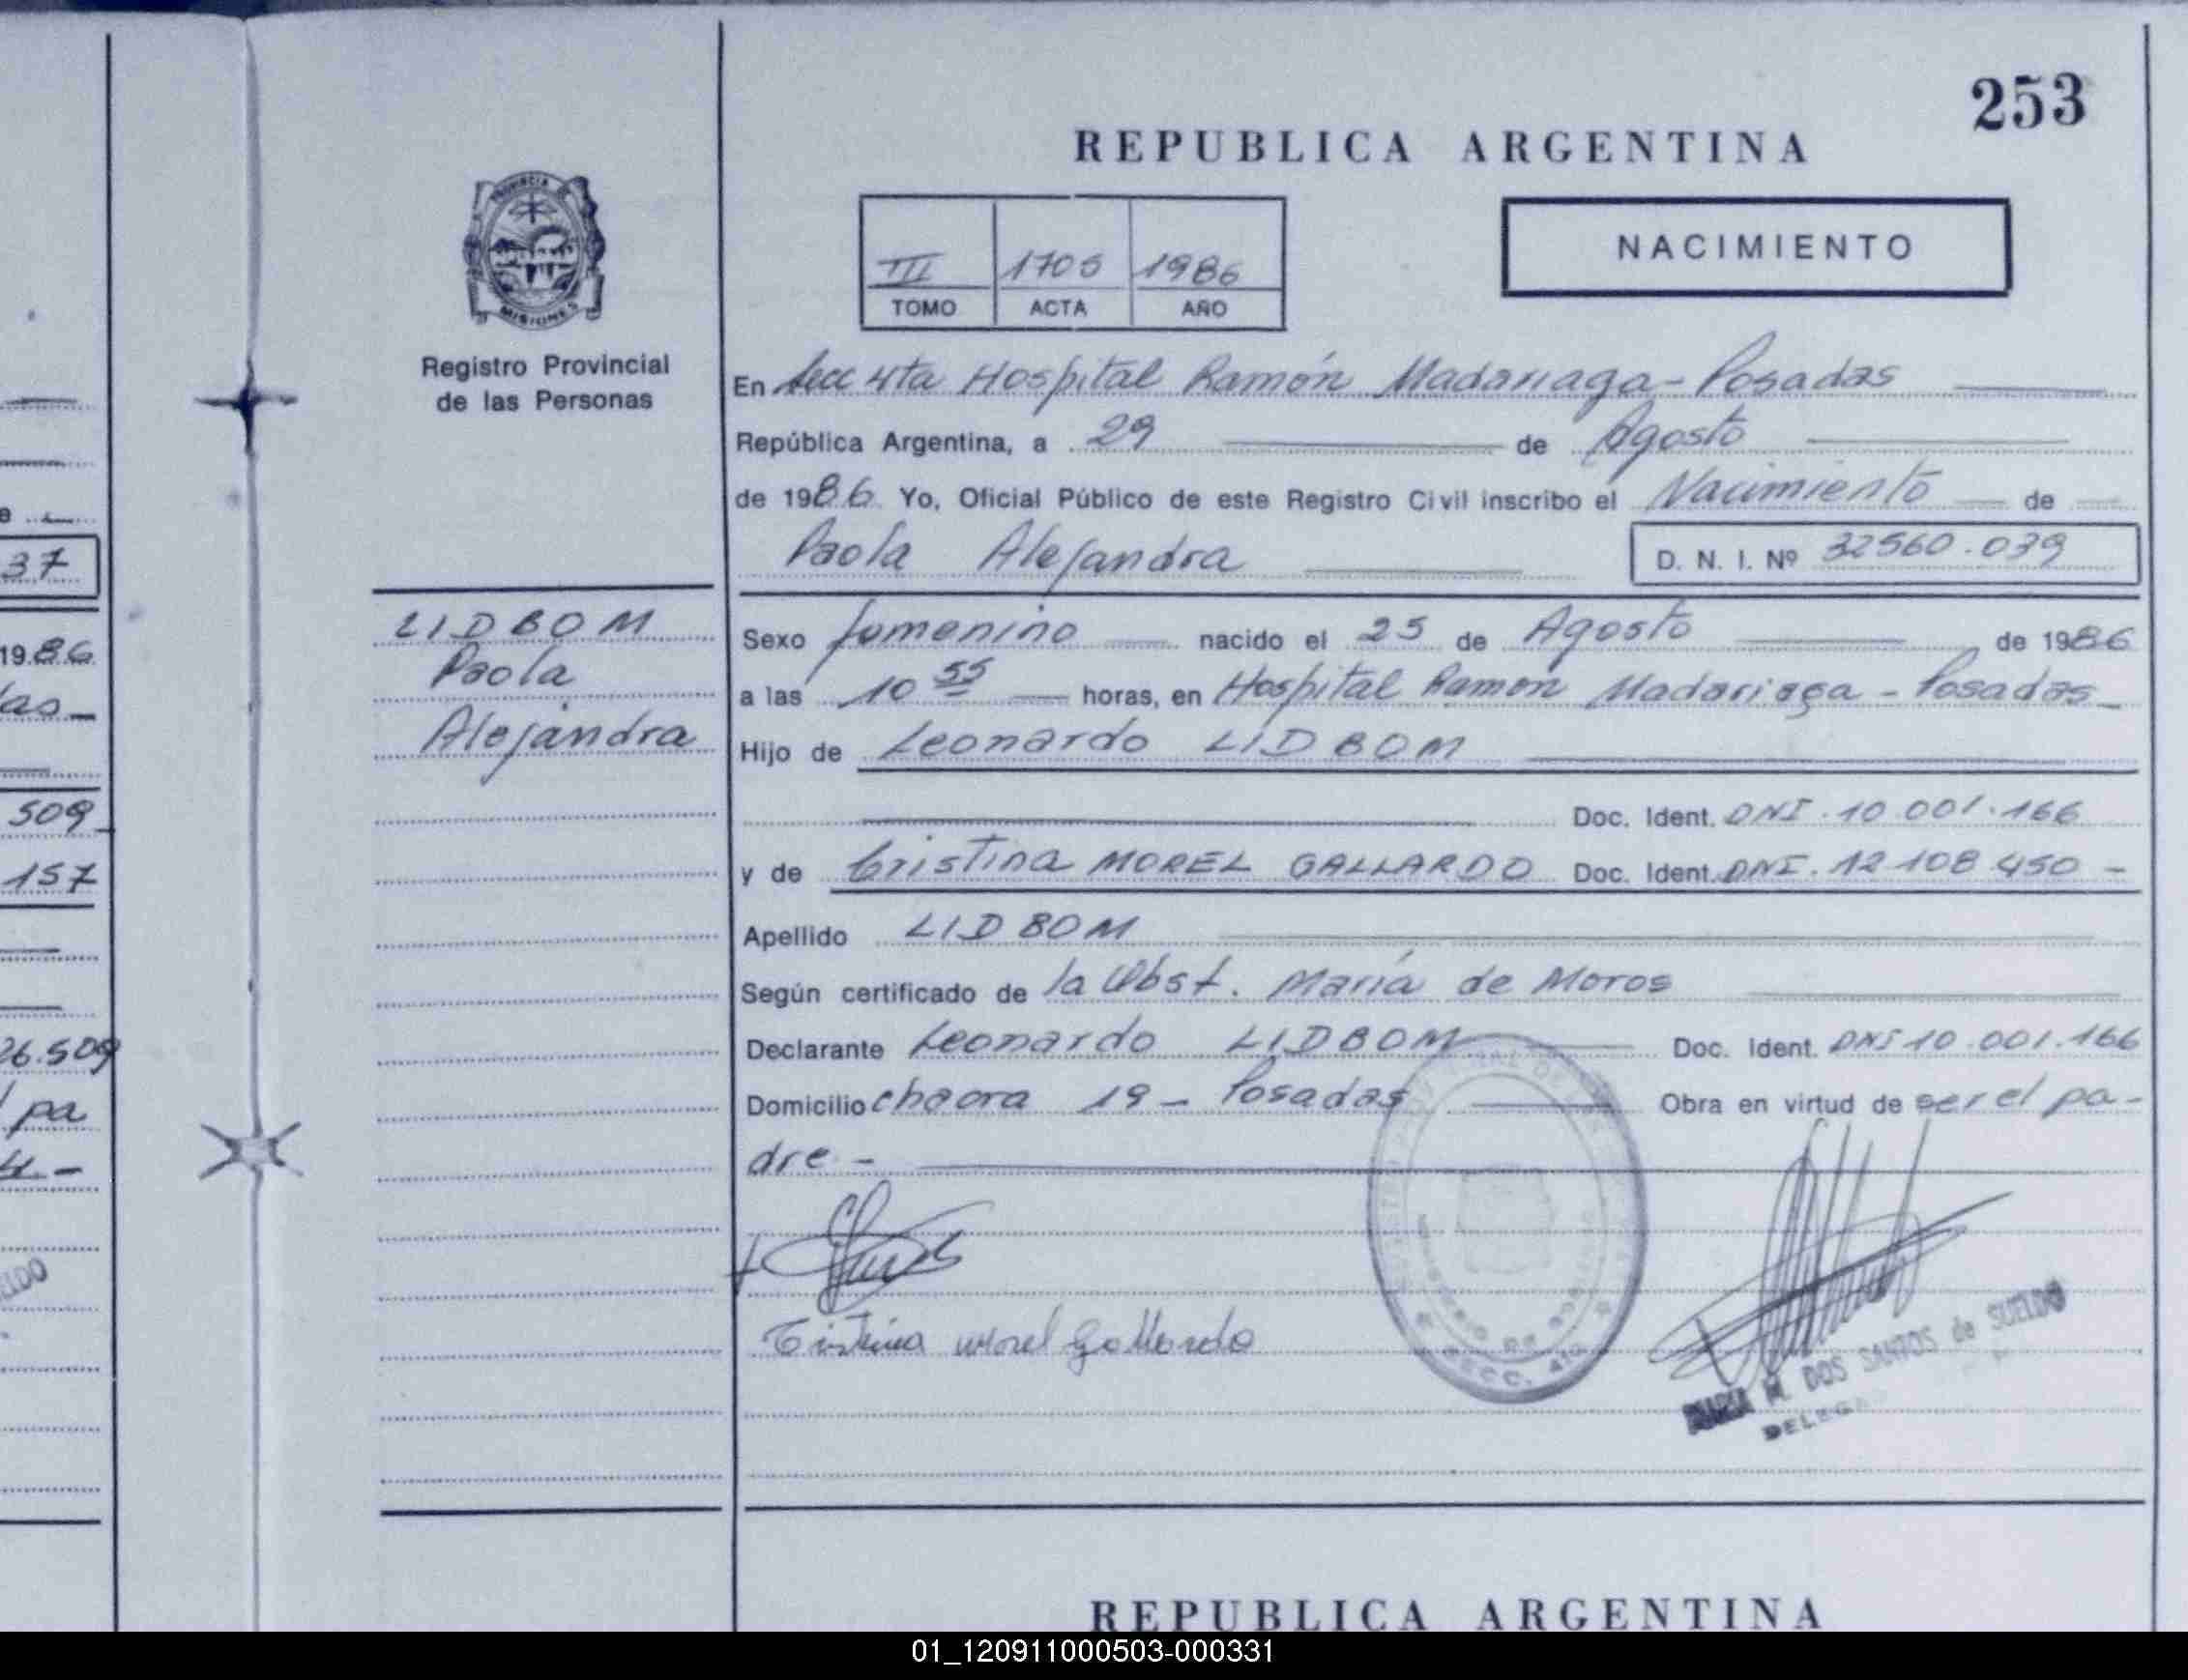 253
REPUBLICA ARGENTINA
PROVINCIA DE
MISIONES
Registro Provincial
de las Personas
III 1705 1986
TOMO ACTA AÑO
NACIMIENTO
En Secc 4ta Hospital Ramón Madariaga - Posadas
República Argentina, a 29 de Agosto
de 1986 Yo, Oficial Público de este Registro Civil inscribo el Nacimiento de
Paola Alejandra D. N. I. Nº 32560.039
LIDBOM
Paola
Alejandra
Sexo femenino nacido el 25 de Agosto de 1986
a las 10 55 horas, en Hospital Ramon Madariaga - Posadas
Hijo de Leonardo LIDBOM
Doc. Ident. DNI. 10.001.166
y de Cristina MOREL GALLARDO Doc. Ident. DNI. 12.108.450 -
Apellido LIDBOM
Según certificado de la Obst. María de Moros
Declarante Leonardo LIDBOM Doc. Ident. DNI 10.001.166
Domicilio chacra 19 - Posadas Obra en virtud de ser el pa-
dre -
Cristina Morel Gallardo
SECC. 4ta
MARIA M. DOS SANTOS de SUELDO
DELEGA
37
1986
509
157
26.509
pa
ELDO
REPUBLICA ARGENTINA
01_120911000503-000331